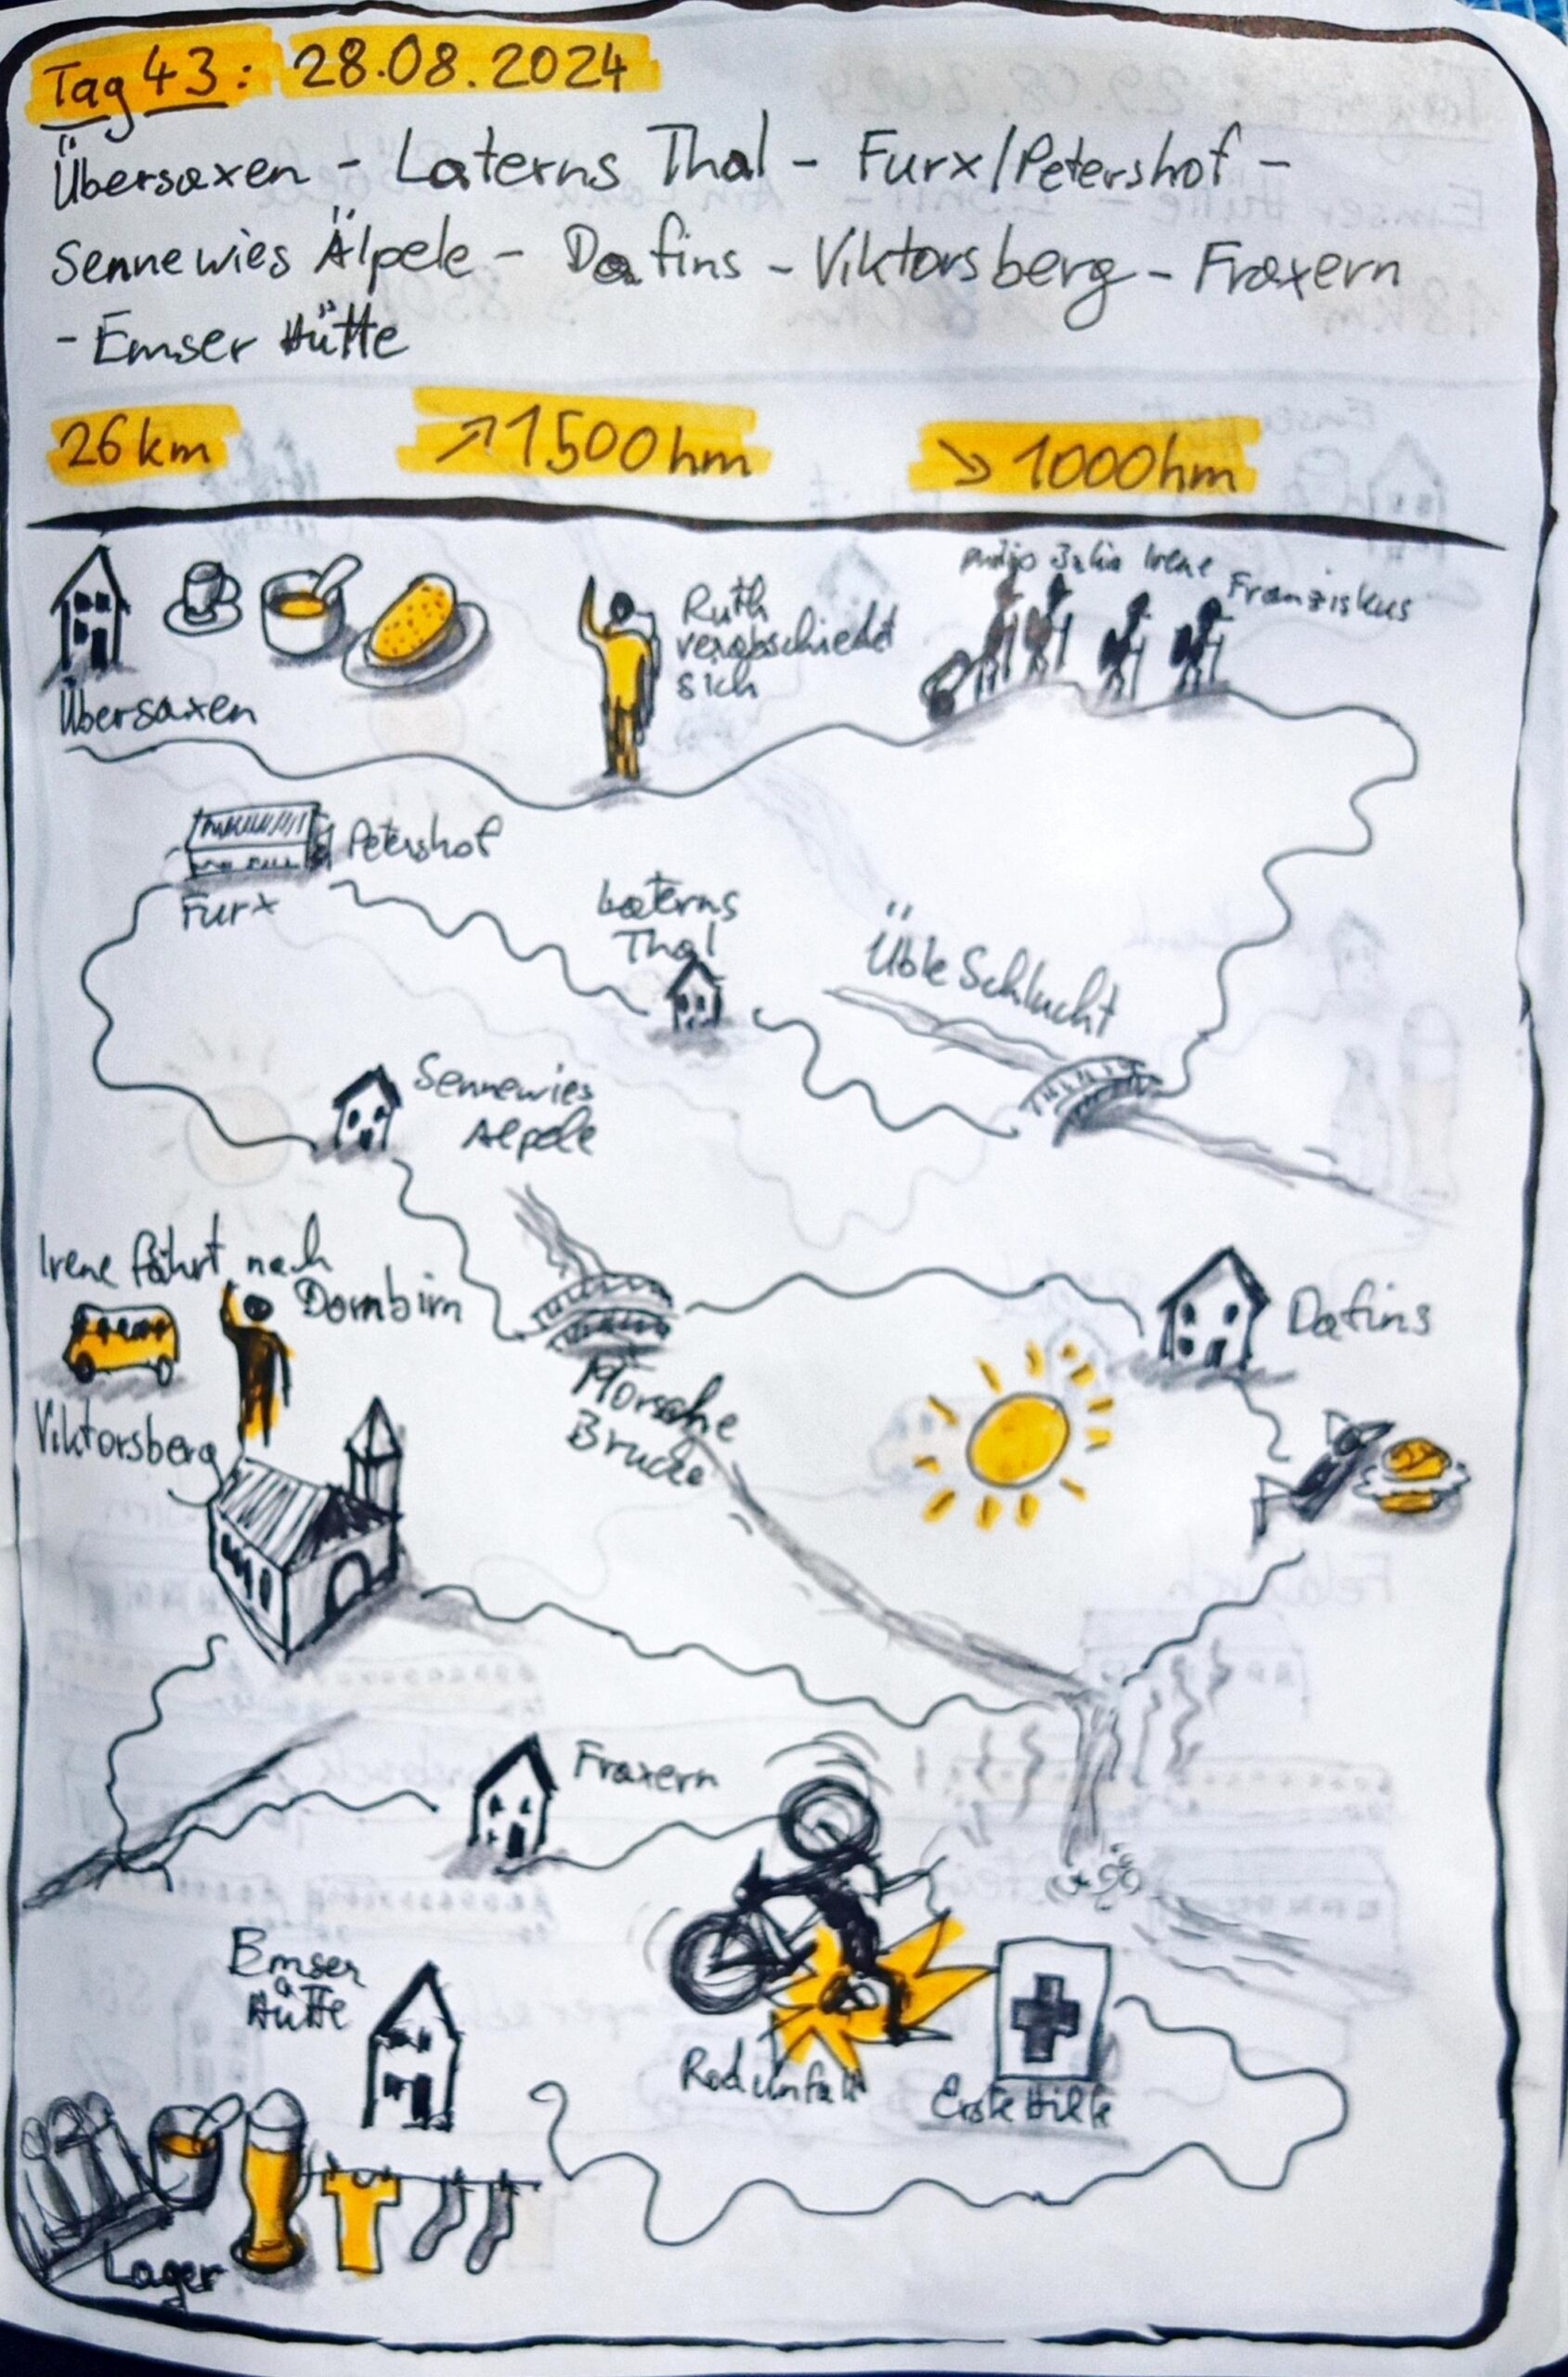 Tag 43: 28.08.2024
Übersaxen - Laterns Thal - Furx/Petershof -
Sennewies Älpele - Dafins - Viktorsberg - Fraxern
- Emser Hütte
26 km ↗1500hm ↘1000hm
Julia Irene
Franziskus
Ruth
verabschiedet
sich
Übersaxen
Petershof
Furx
Laterns
Thal
Üble Schlucht
Sennewies
Alpele
Irene fährt nach
Dornbirn
Dafins
Morsche
Brücke
Viktorsberg
Fraxern
Emser
Hütte
Radunfall
Erste Hilfe
Lager